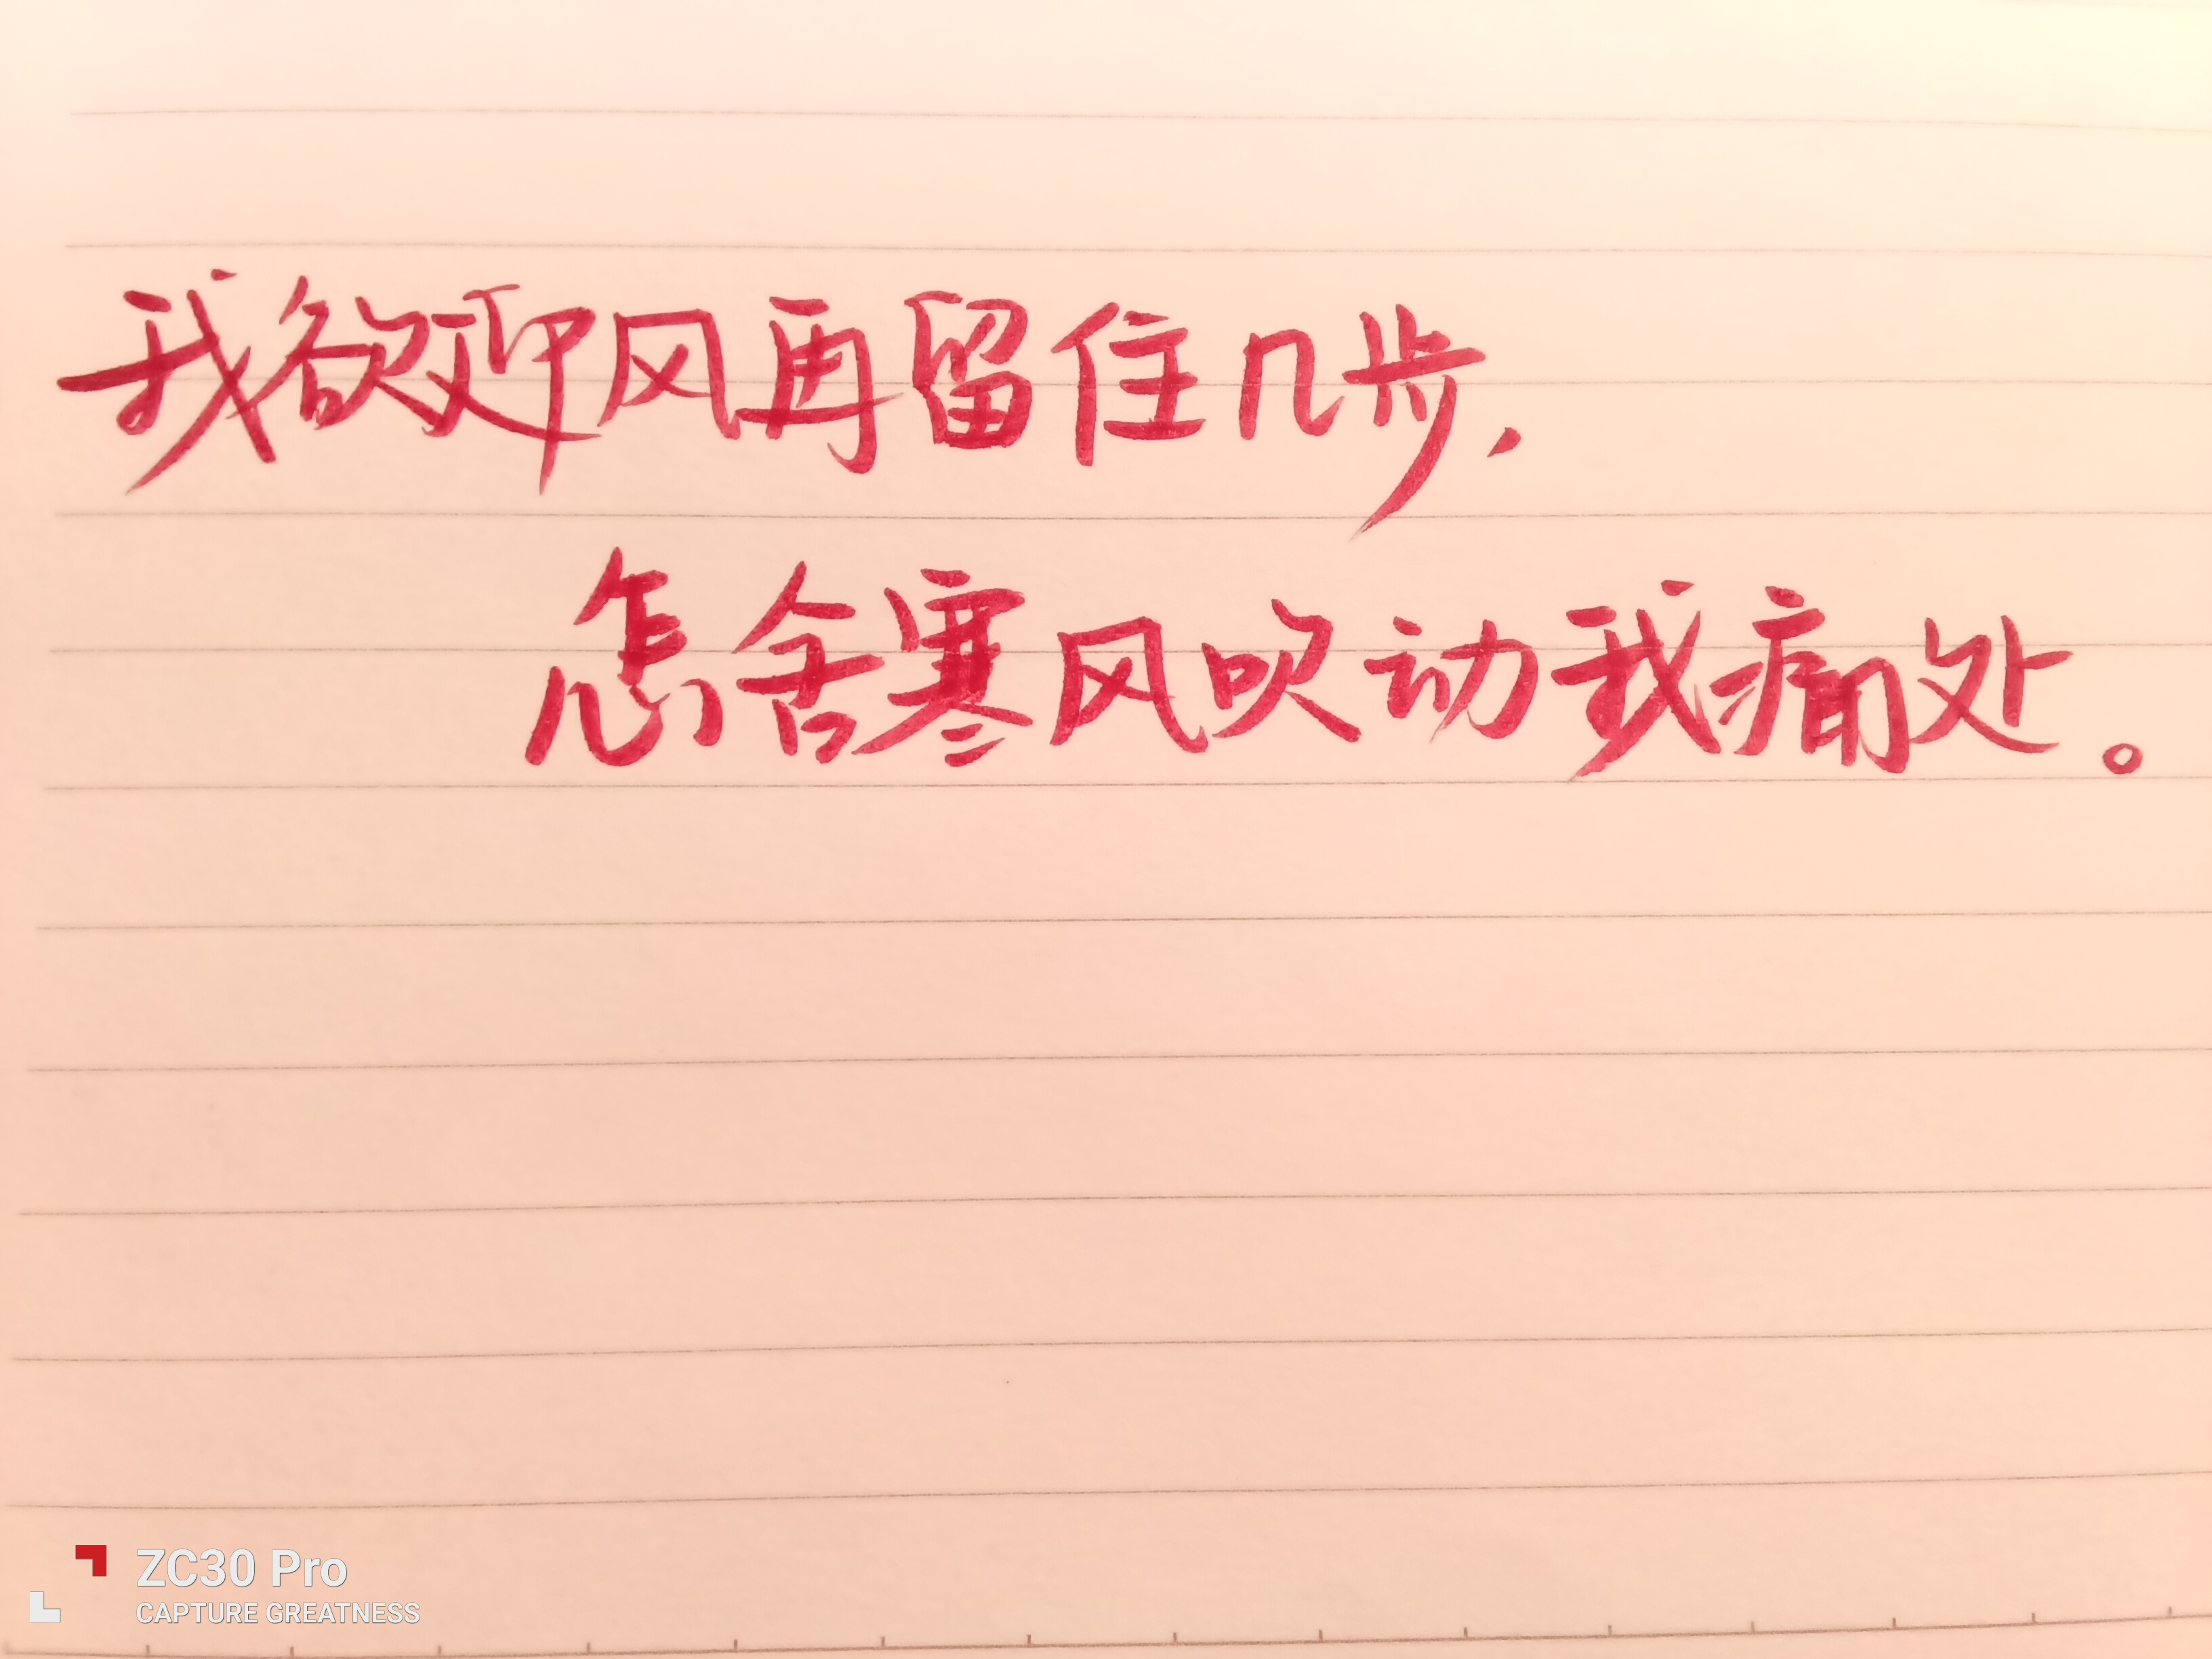 我欲迎风再留住几步，
怎舍寒风吹动我痛处。
ZC30 Pro
CAPTURE GREATNESS